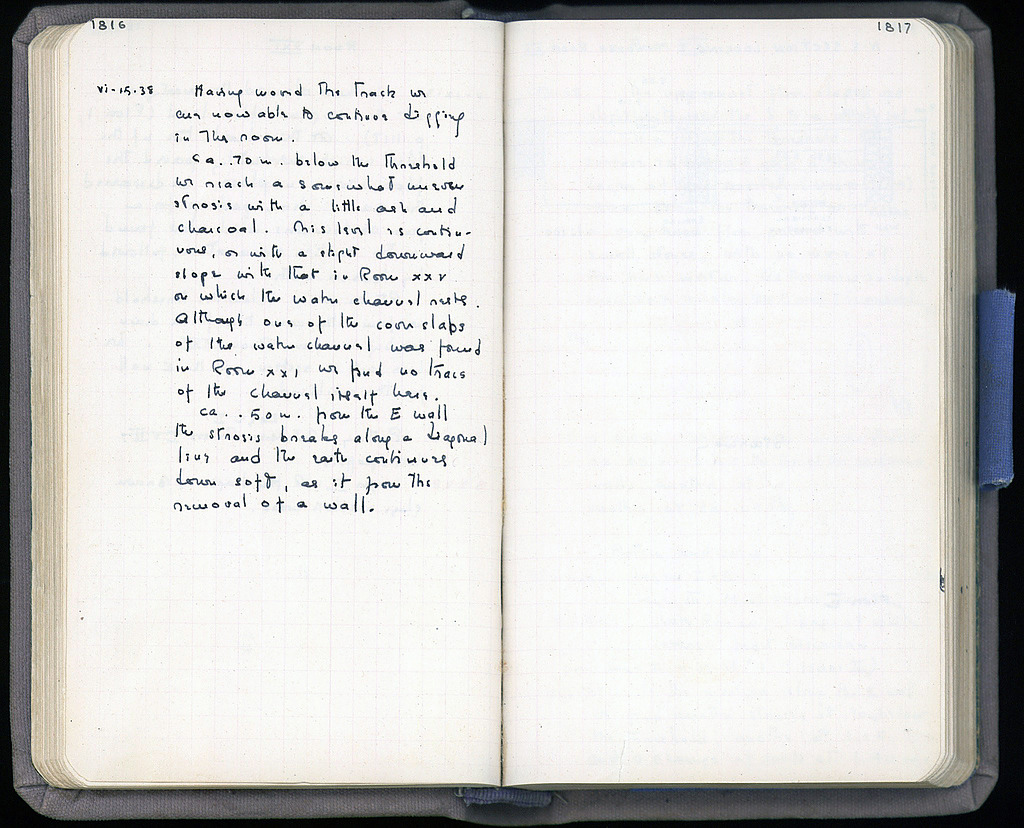 1816
1817
vi-15-38 Having moved the track we
are now able to continue digging
in the room.
Ca. .70 m. below the threshold
we reach a somewhat uneven
strosis with a little ash and
charcoal. This level is contin-
uous, or with a slight downward
slope with that in Room xxv
on which the water channel rests.
Although one of the cover slabs
of the water channel was found
in Room xxi we find no trace
of the channel itself here.
Ca. .50 m. from the E wall
the strosis breaks along a diagonal
line and the earth continues
down soft, as if from the
removal of a wall.